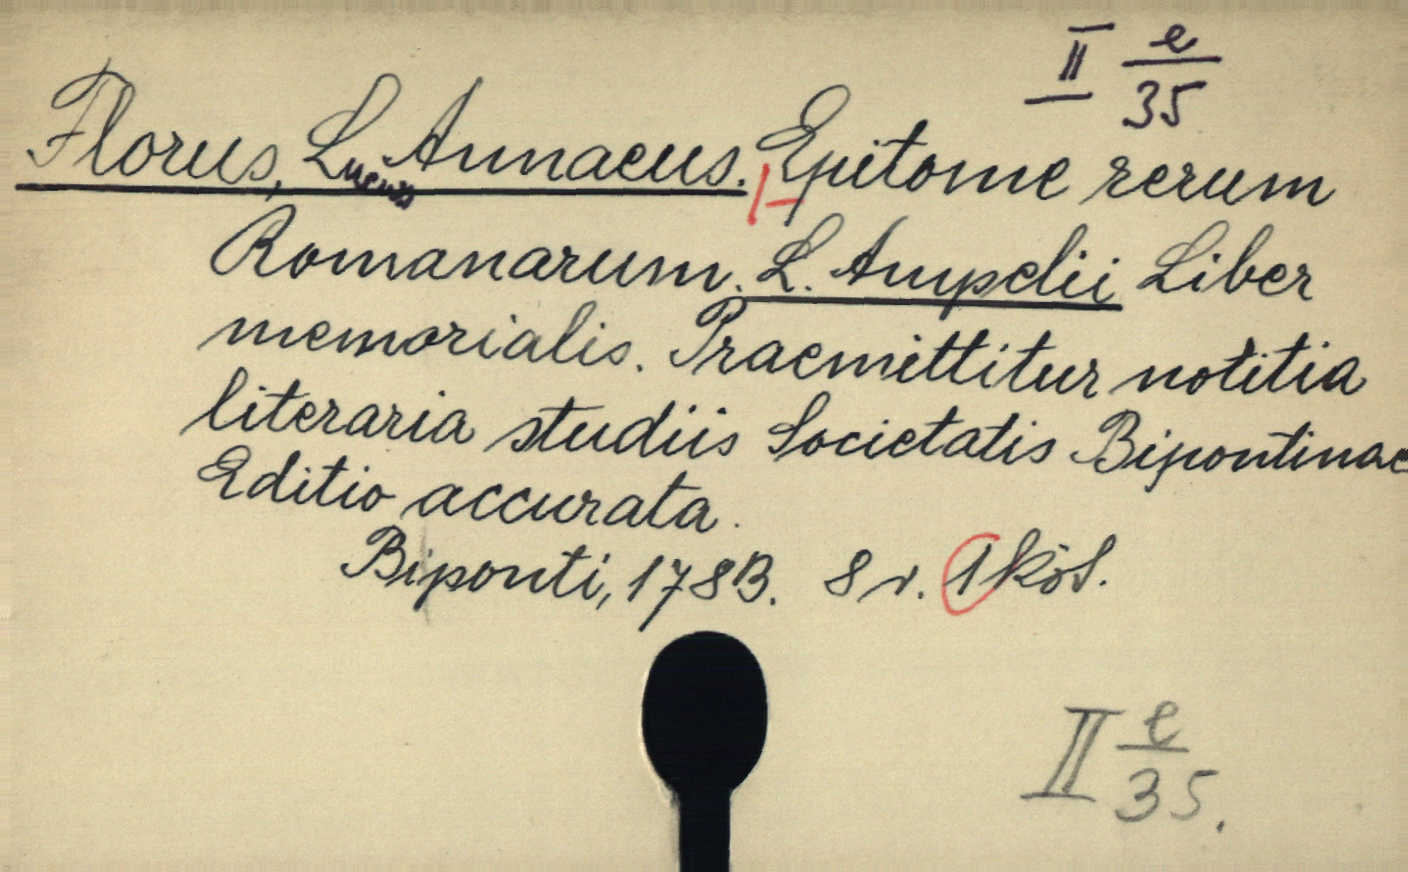 II e/35
Florus, Lucius Annaeus. Epitome rerum
Romanarum. L. Ampelii Liber
memorialis. Praemittitur notitia
literaria studiis Societatis Bipontinae
Editio accurata.
Biponti, 1783. 8 r. 1 köt.
II e/35.